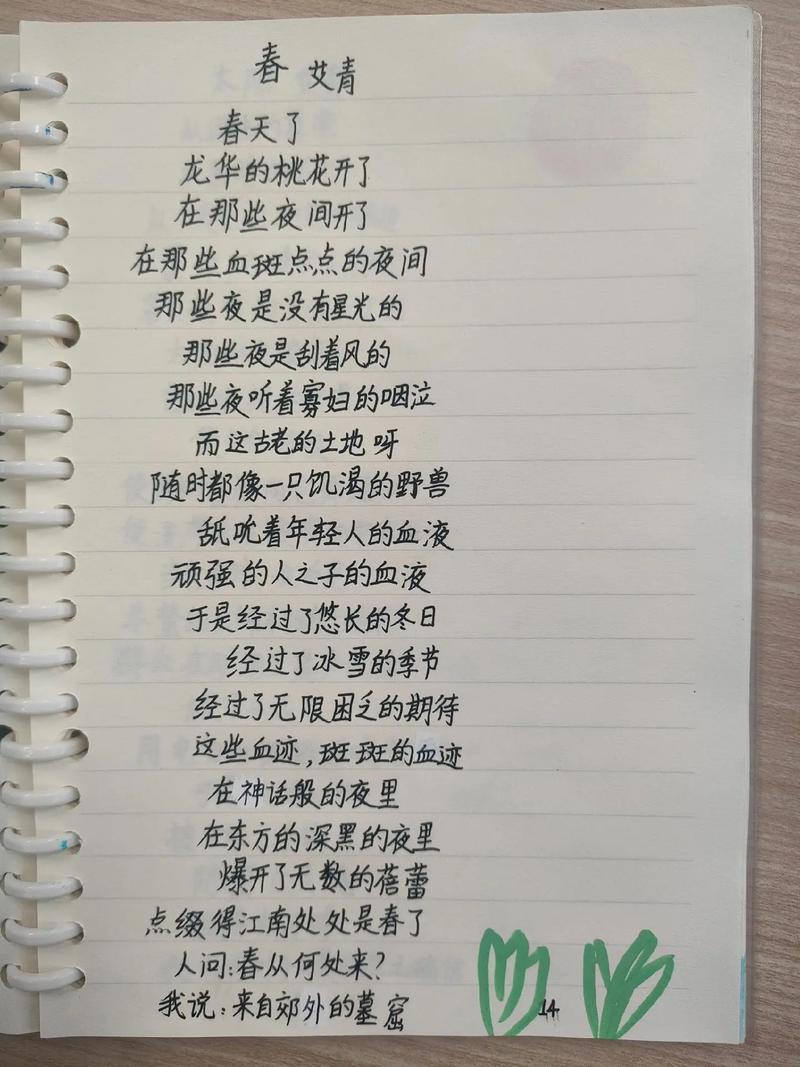 春 艾青
春天了
龙华的桃花开了
在那些夜间开了
在那些血斑点点的夜间
那些夜是没有星光的
那些夜是刮着风的
那些夜听着寡妇的咽泣
而这古老的土地呀
随时都像一只饥渴的野兽
舐吮着年轻人的血液
顽强的人之子的血液
于是经过了悠长的冬日
经过了冰雪的季节
经过了无限困乏的期待
这些血迹,斑斑的血迹
在神话般的夜里
在东方的深黑的夜里
爆开了无数的蓓蕾
点缀得江南处处是春了
人问:春从何处来?
我说:来自郊外的墓窟
14